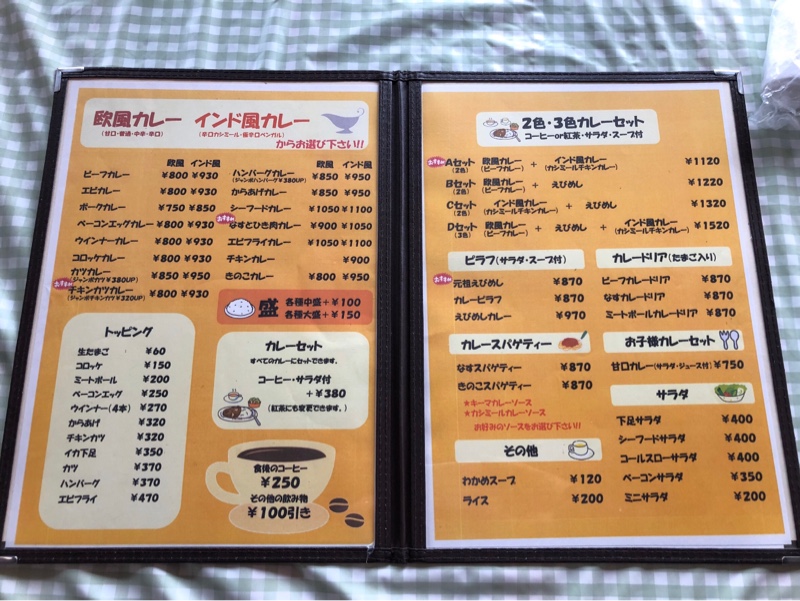 欧風カレー インド風カレー
(甘口・普通・中辛・辛口) (辛口カシミール・極辛口ベンガル)
からお選び下さい!!
欧風 インド風
ビーフカレー ¥800 ¥930
エビカレー ¥800 ¥930
ポークカレー ¥750 ¥850
ベーコンエッグカレー ¥800 ¥930
ウインナーカレー ¥800 ¥930
コロッケカレー ¥800 ¥930
カツカレー ¥850 ¥950
(ジャンボカツ¥380UP)
おすすめ
チキンカツカレー ¥800 ¥930
(ジャンボチキンカツ¥320UP)
欧風 インド風
ハンバーグカレー ¥850 ¥950
(ジャンボハンバーグ¥380UP)
からあげカレー ¥850 ¥950
シーフードカレー ¥1050 ¥1100
おすすめ
なすとひき肉カレー ¥900 ¥1050
エビフライカレー ¥1050 ¥1100
チキンカレー ¥900
きのこカレー ¥800 ¥950
盛 各種中盛+¥100
各種大盛+¥150
トッピング
生たまご ¥60
コロッケ ¥150
ミートボール ¥200
ベーコンエッグ ¥250
ウインナー(4本) ¥270
からあげ ¥320
チキンカツ ¥320
イカ下足 ¥350
カツ ¥370
ハンバーグ ¥370
エビフライ ¥470
カレーセット
すべてのカレーにセットできます。
コーヒー・サラダ付
+¥380
(紅茶にも変更できます。)
食後のコーヒー
¥250
その他の飲み物
¥100引き
2色・3色カレーセット
コーヒーor紅茶・サラダ・スープ付
おすすめ
Aセット 欧風カレー + インド風カレー ¥1120
(2色) (ビーフカレー) (カシミールチキンカレー)
Bセット 欧風カレー + えびめし ¥1220
(2色) (ビーフカレー)
Cセット インド風カレー + えびめし ¥1320
(2色) (カシミールチキンカレー)
Dセット 欧風カレー + えびめし + インド風カレー ¥1520
(3色) (ビーフカレー) (カシミールチキンカレー)
ピラフ(サラダ・スープ付)
おすすめ
元祖えびめし ¥870
カレーピラフ ¥870
えびめしカレー ¥970
カレースパゲティー
なすスパゲティー ¥870
きのこスパゲティー ¥870
★キーマカレーソース
★カシミールカレーソース
お好みのソースをお選び下さい!!
その他
わかめスープ ¥120
ライス ¥200
カレードリア(たまご入り)
ビーフカレードリア ¥870
なすカレードリア ¥870
ミートボールカレードリア ¥870
お子様カレーセット
甘口カレー(サラダ・ジュース付) ¥750
サラダ
下足サラダ ¥400
シーフードサラダ ¥400
コールスローサラダ ¥400
ベーコンサラダ ¥350
ミニサラダ ¥200